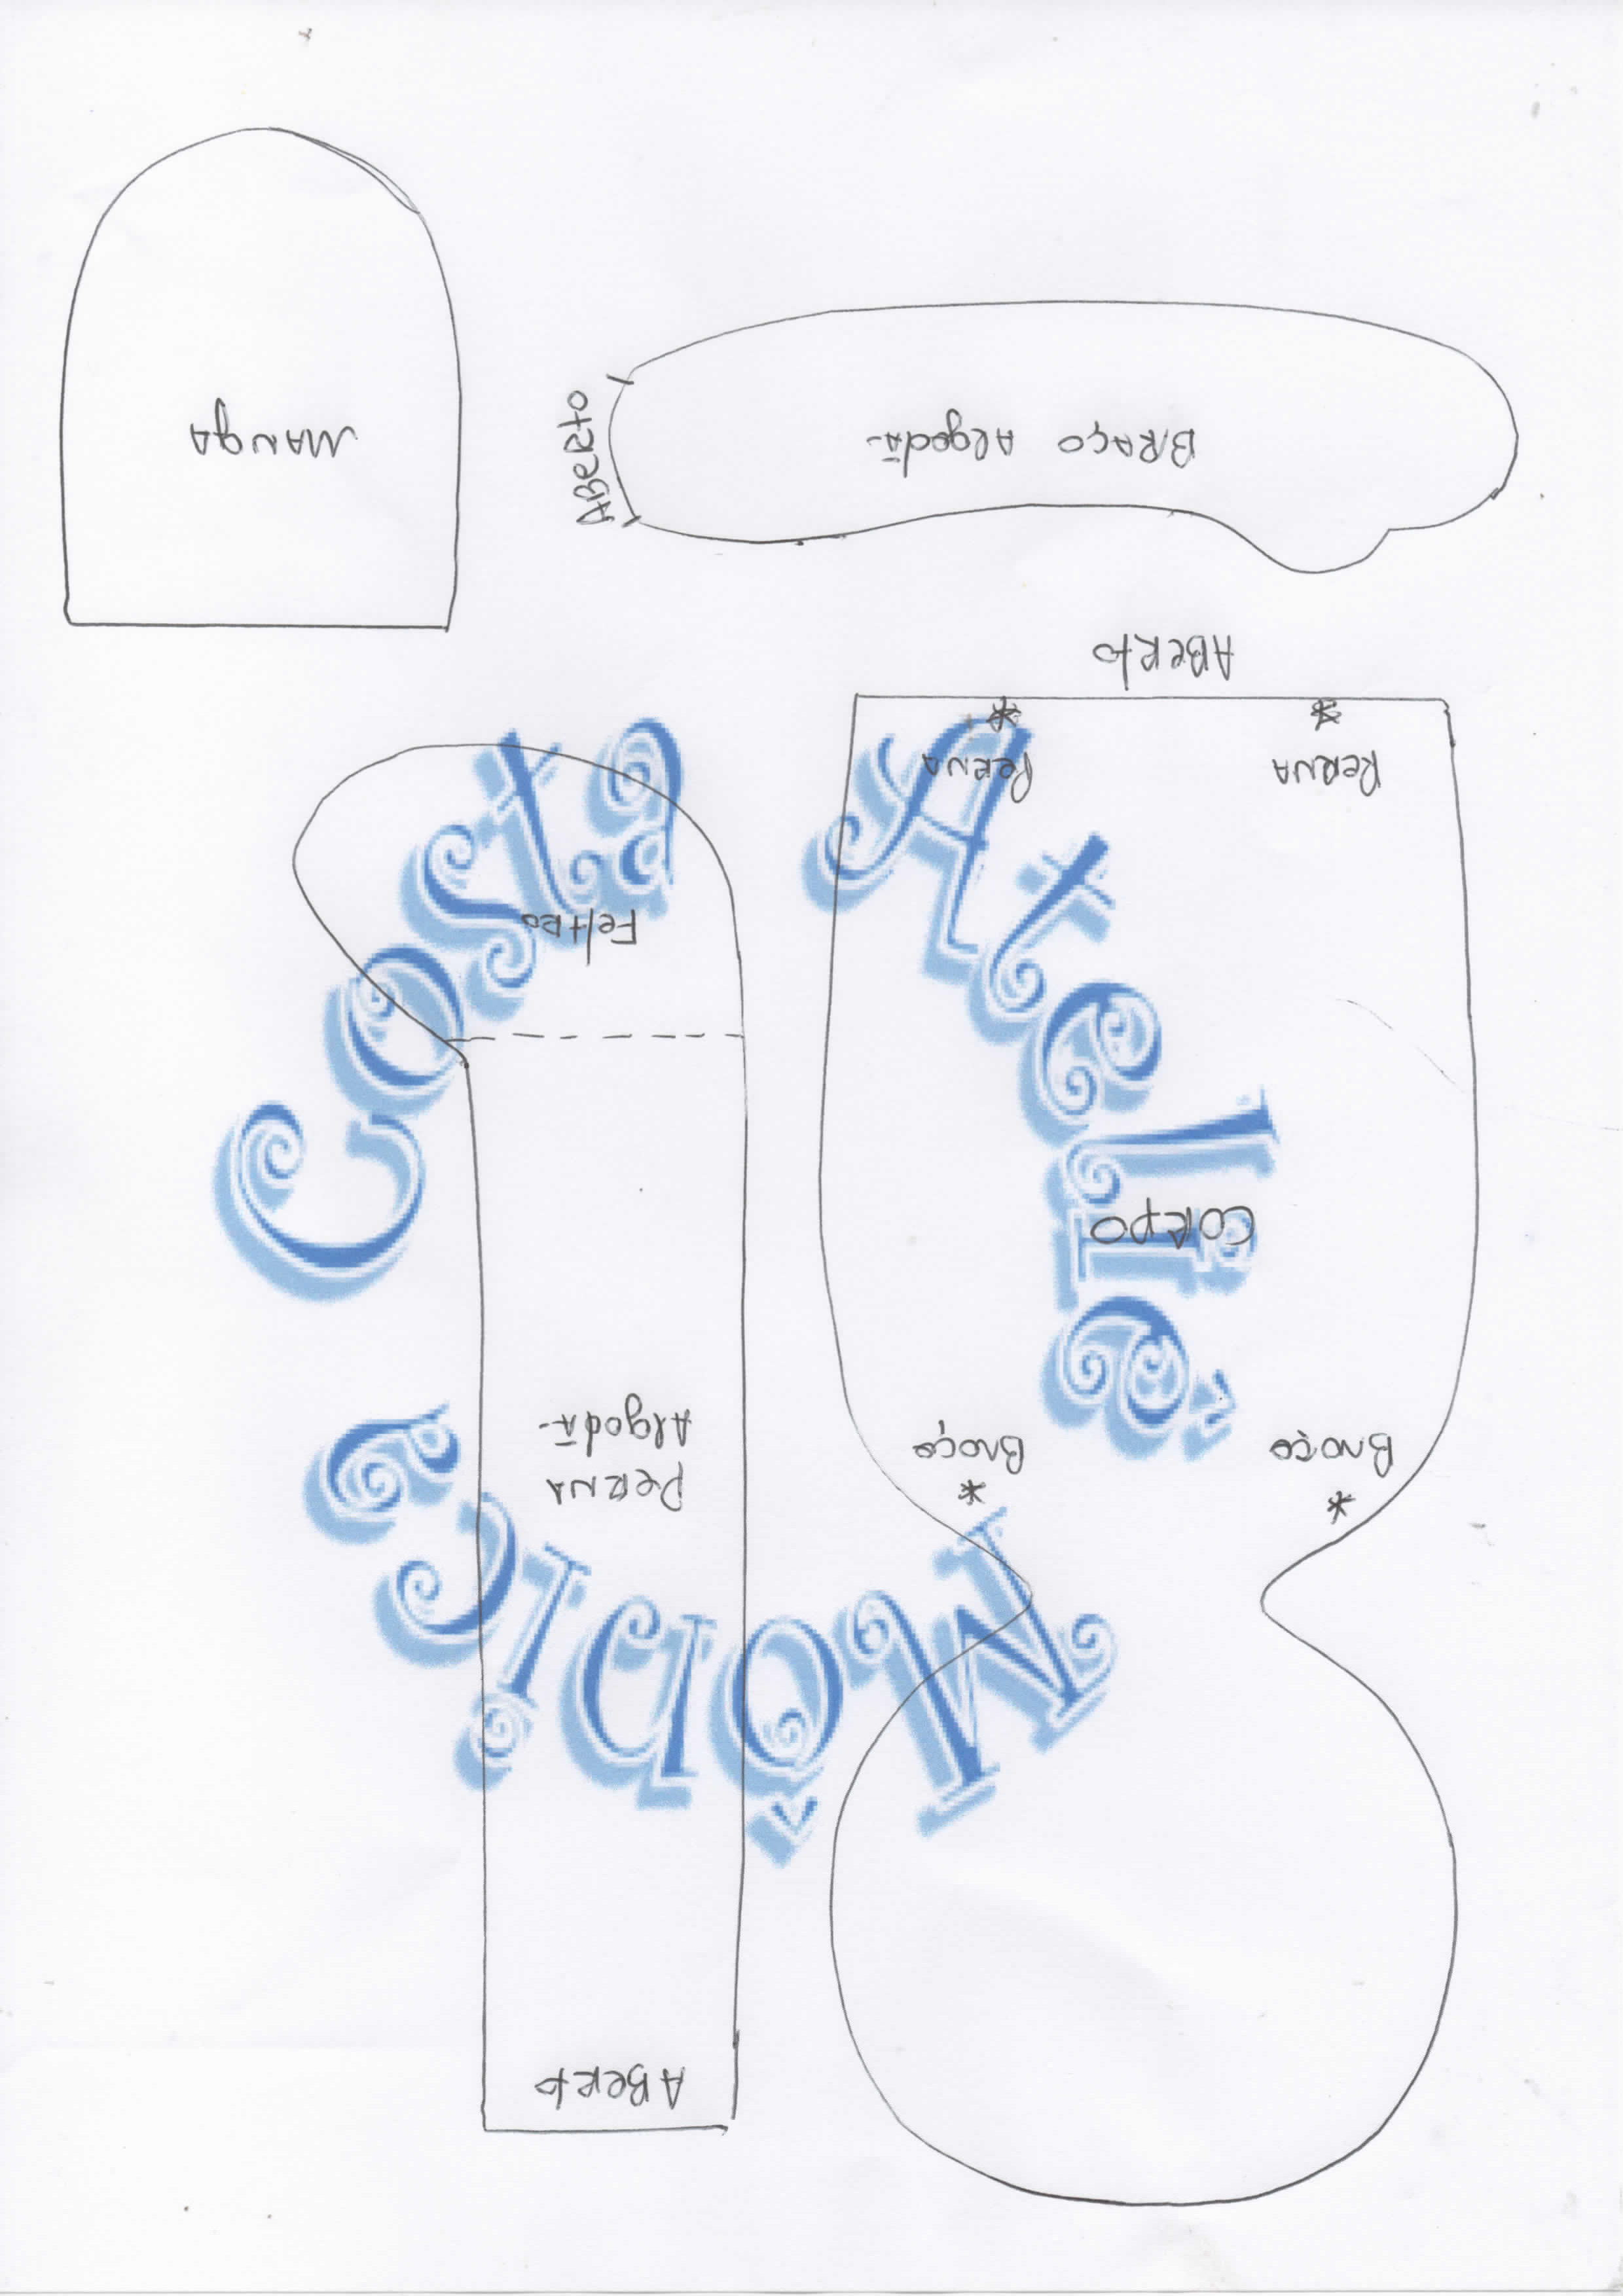 ABERTO
PERNA
Algodã-
BRAÇO
BRAÇO
CORPO
FELTRO
PERNA
PERNA
ABERTO
BRAÇO Algodã-
ABERTO
MANGA
Ateliê Mônica Costa